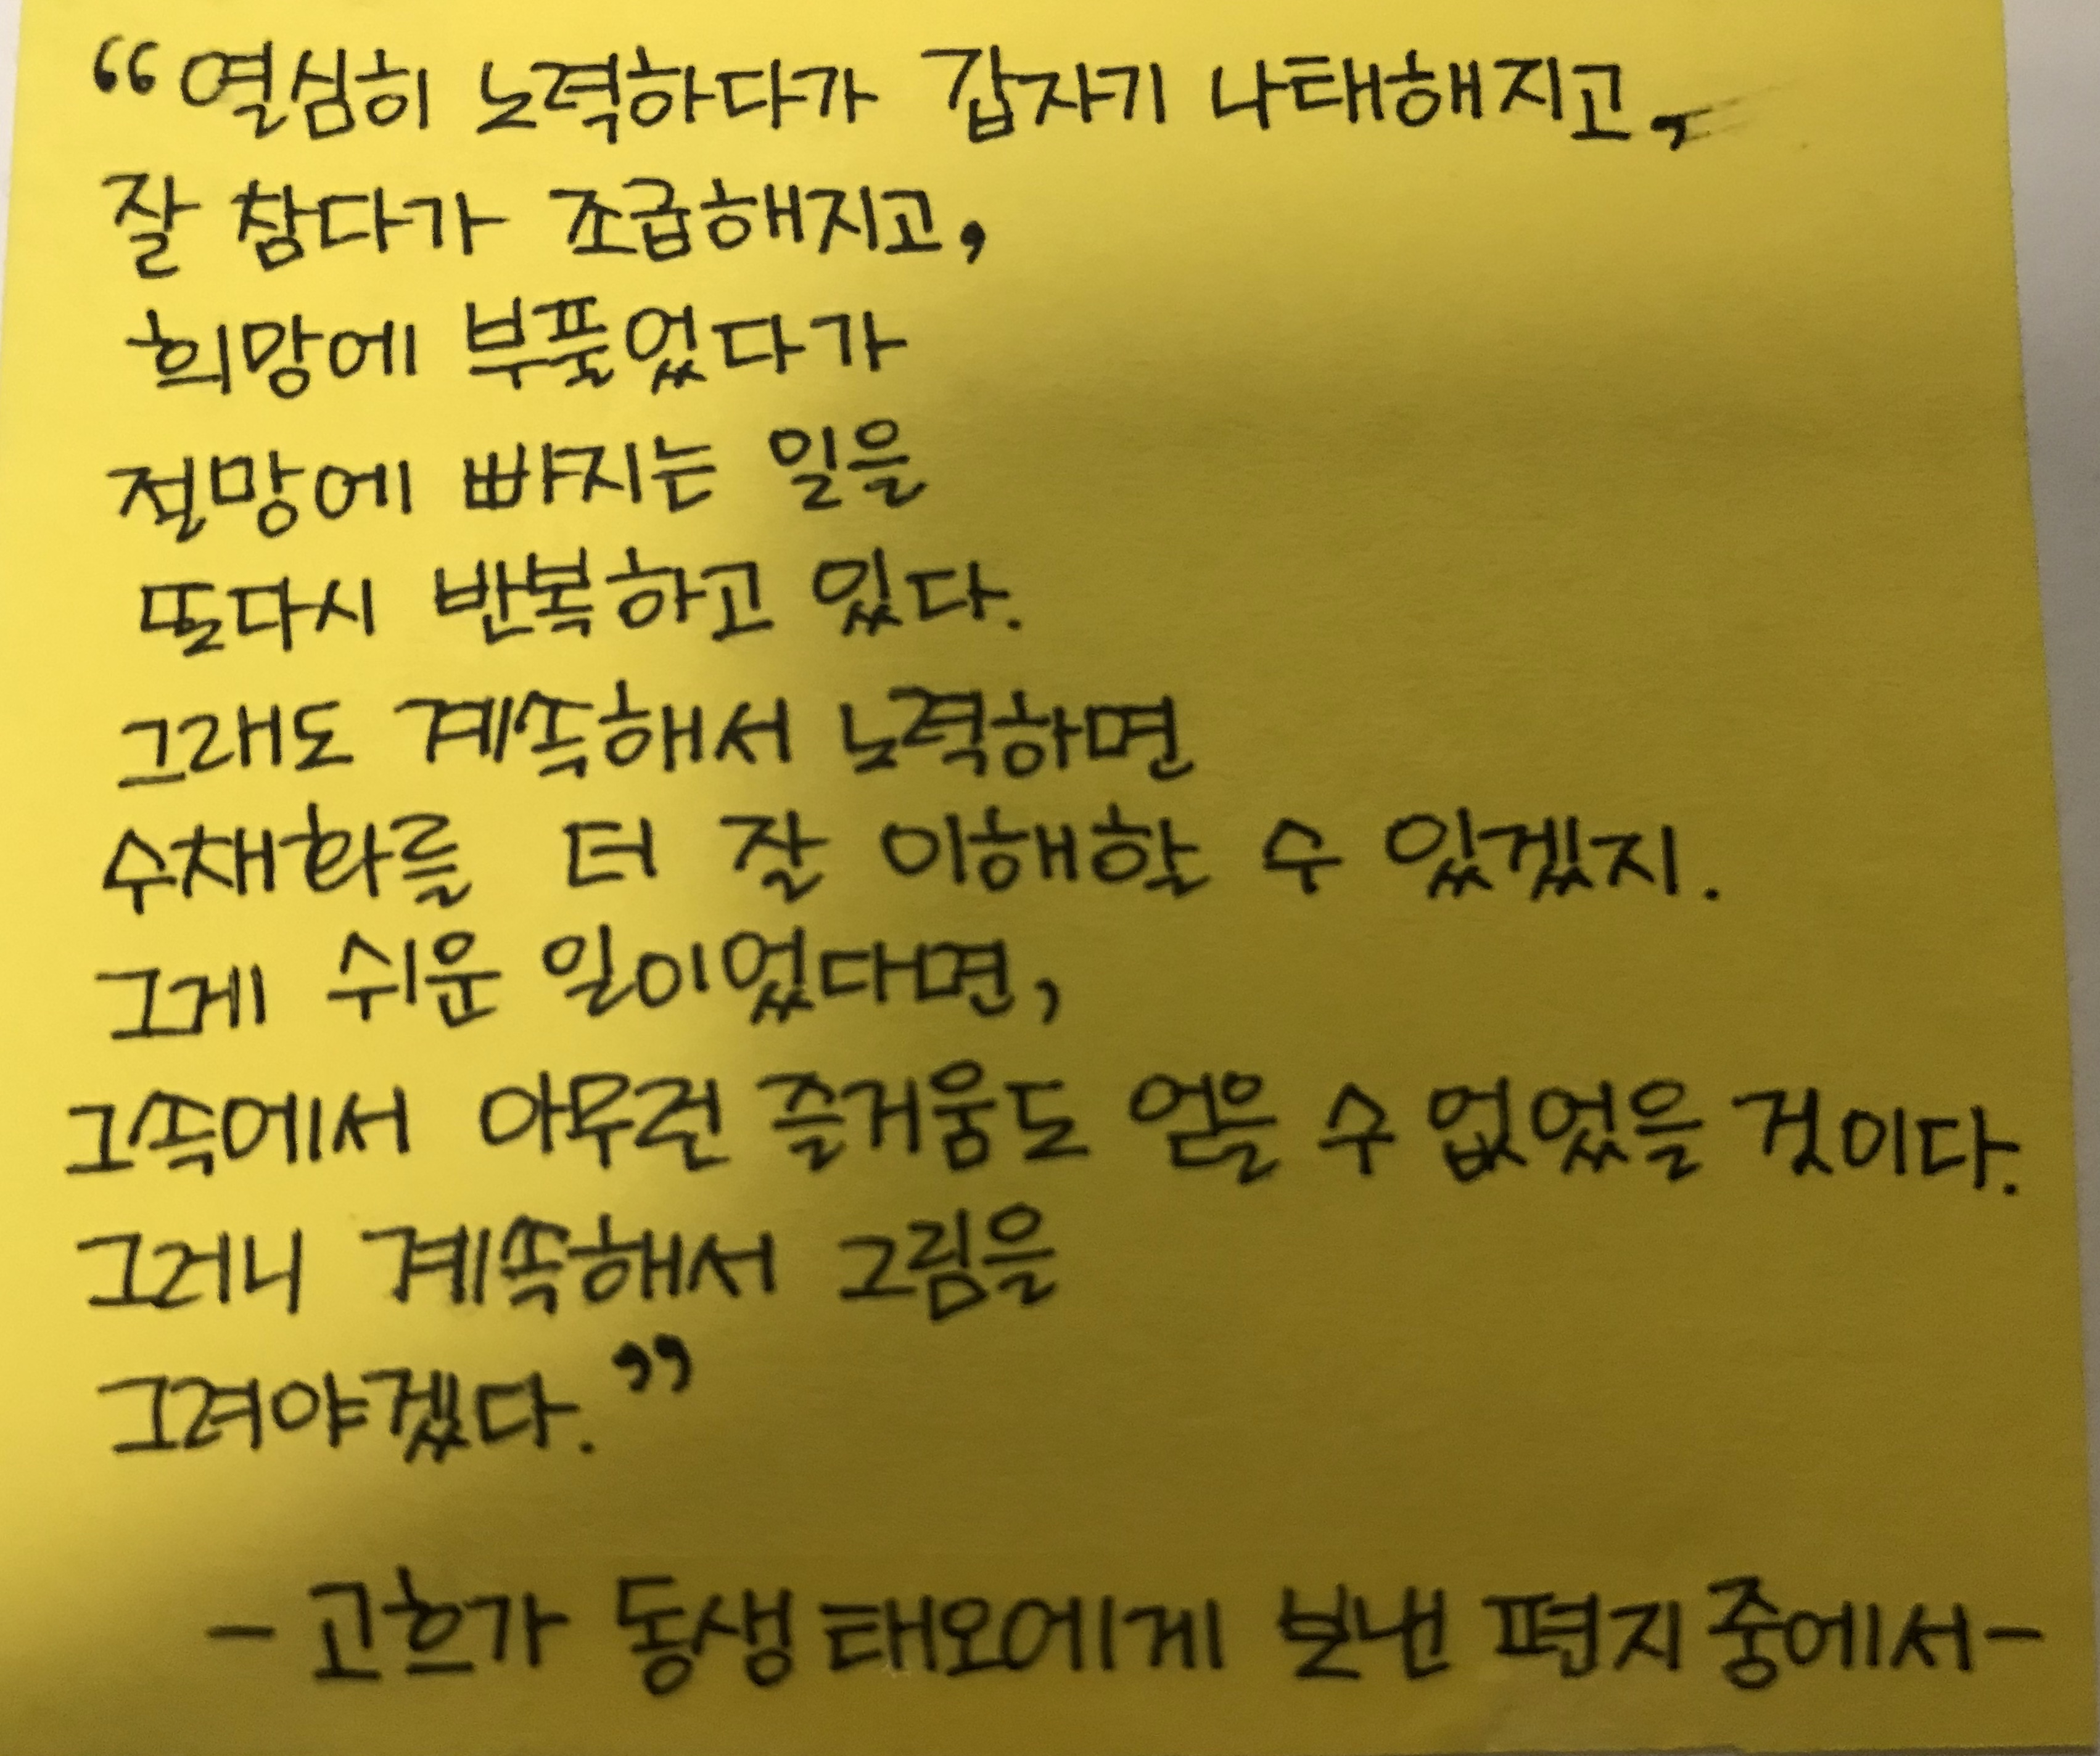 “열심히 노력하다가 갑자기 나태해지고,
잘 참다가 조급해지고,
희망에 부풀었다가
절망에 빠지는 일을
또다시 반복하고 있다.
그래도 계속해서 노력하면
수채화를 더 잘 이해할 수 있겠지.
그게 쉬운 일이었다면,
그속에서 아무런 즐거움도 얻을 수 없었을 것이다.
그러니 계속해서 그림을
그려야겠다.”
- 고흐가 동생 태오에게 보낸 편지 중에서-